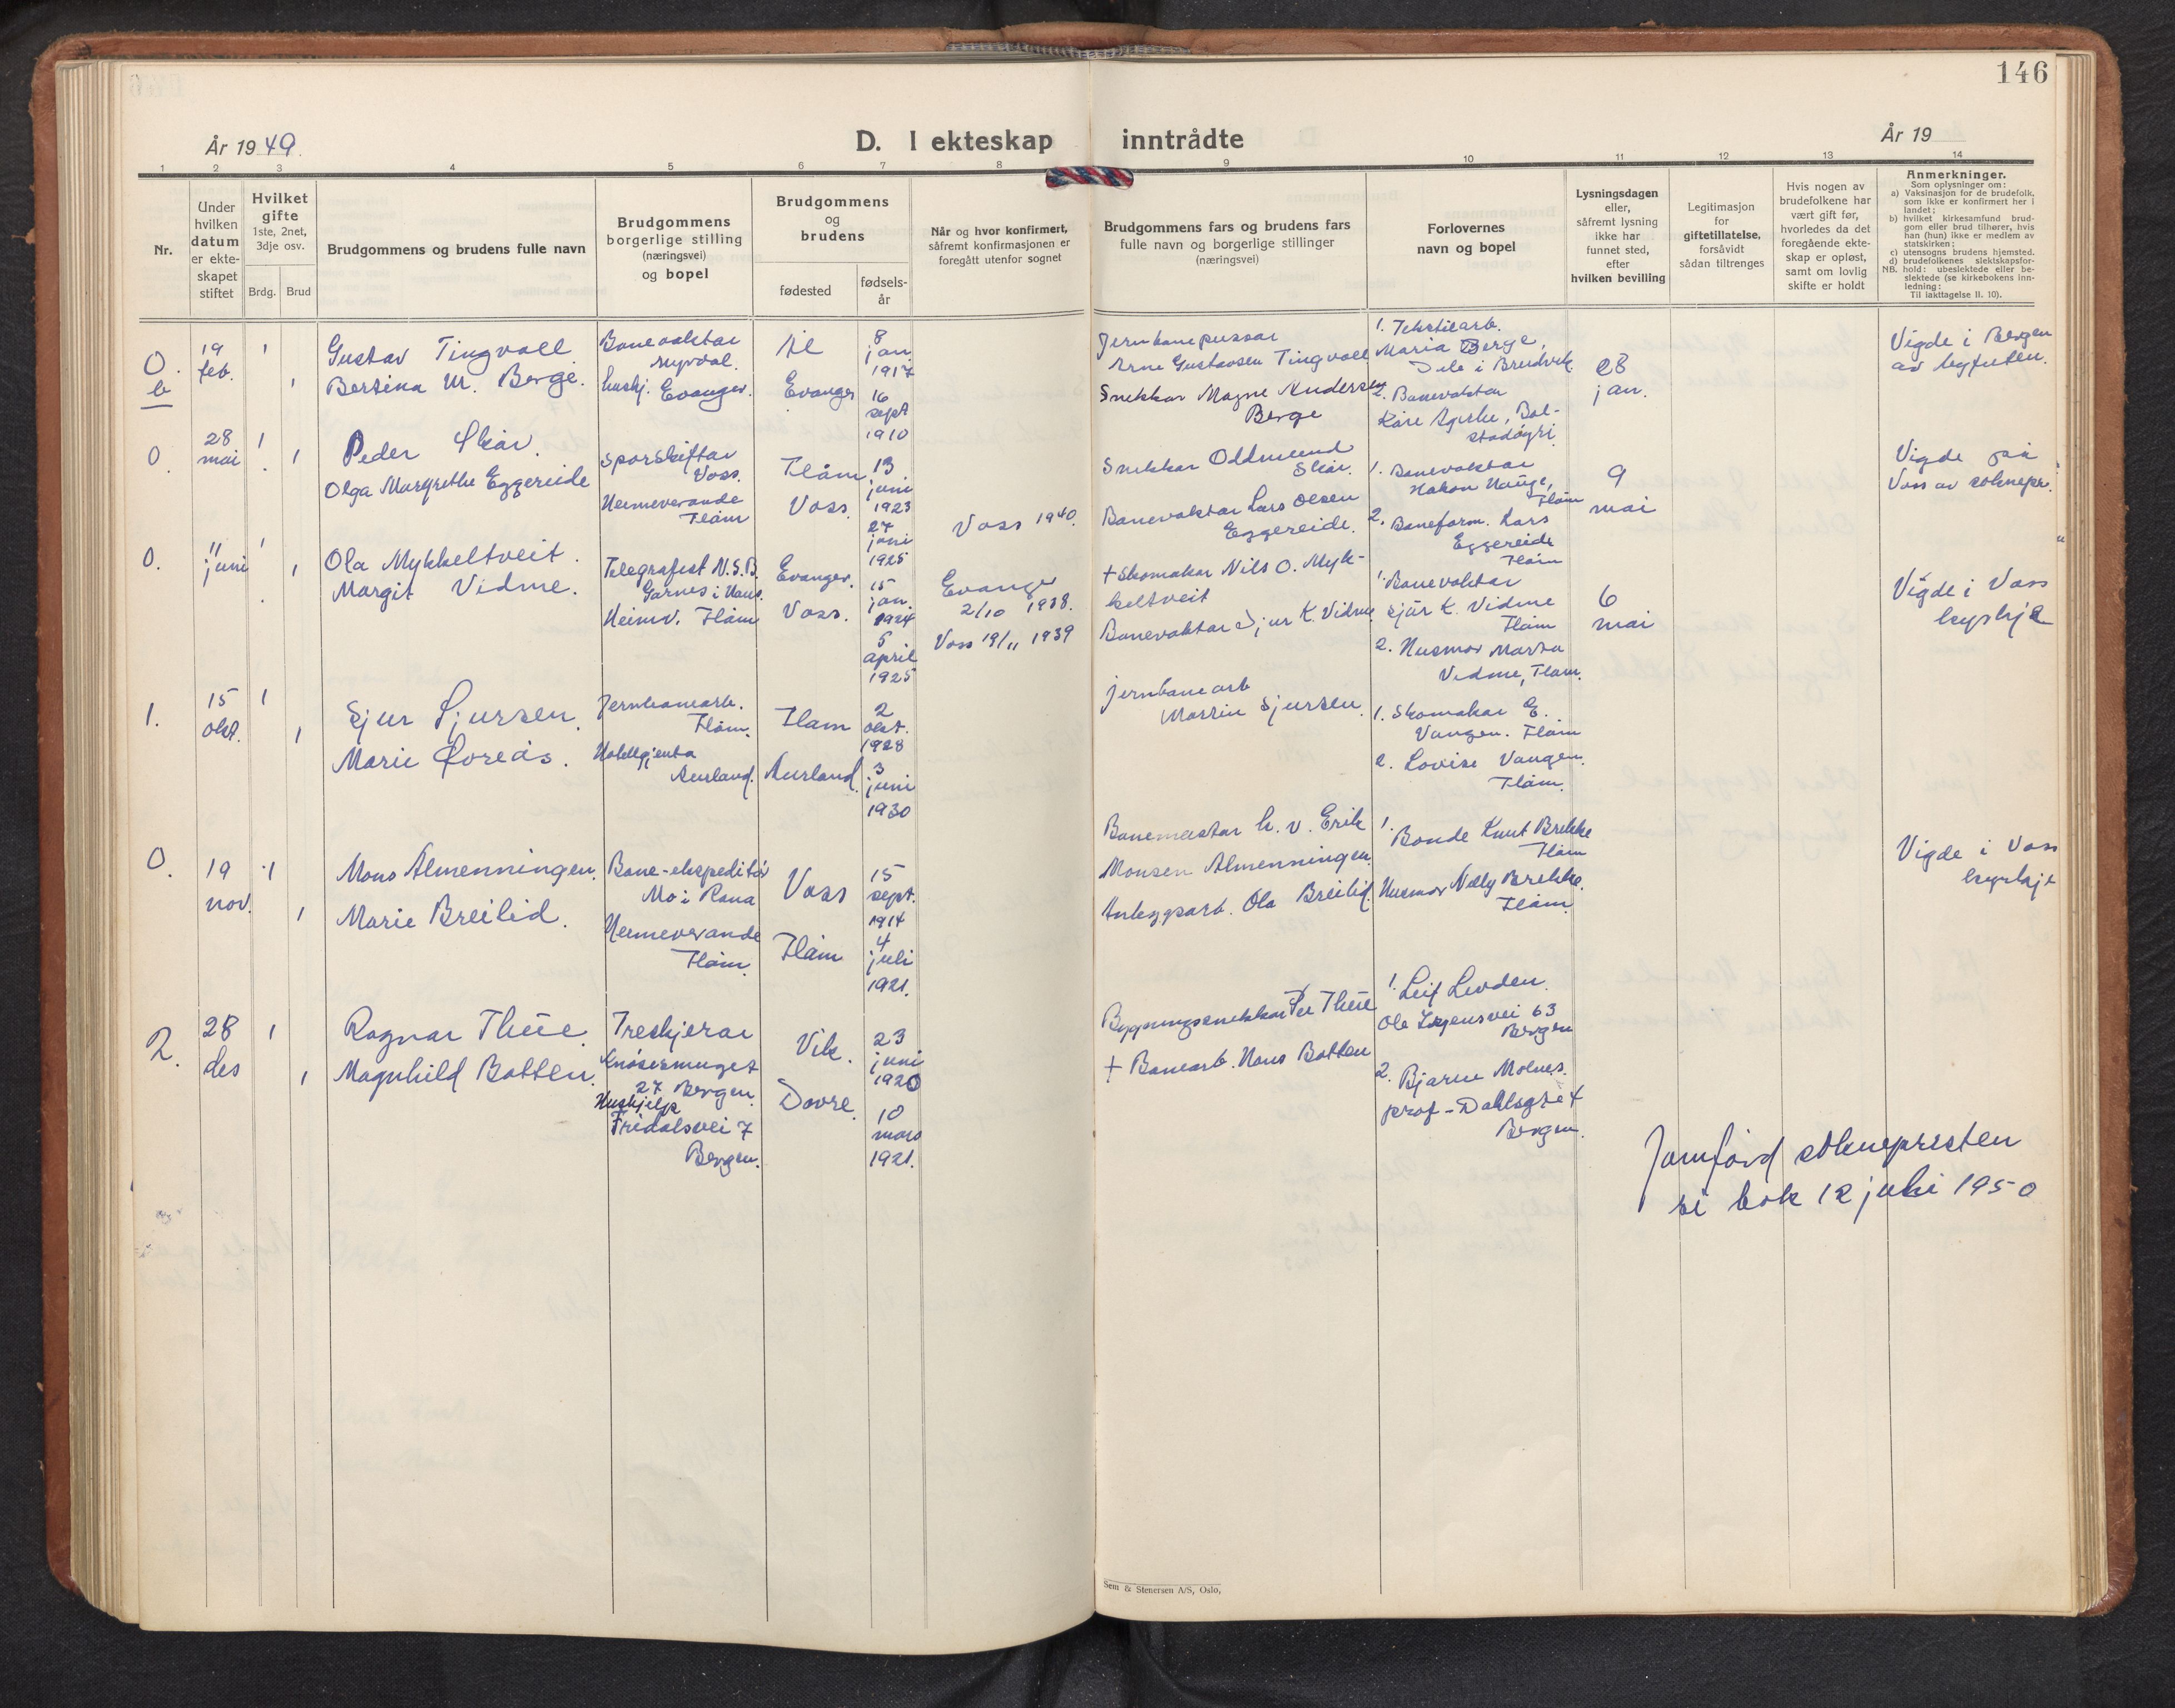 146
År 1949.
D. I ekteskap inntrådte
År 19
1 2 3 4 5 6 7 8 9 10 11 12 13 14
Nr.
Under
hvilken
datum
er ekte-
skapet
stiftet
Hvilket
gifte
1ste, 2net,
3dje osv.
Brdg. Brud
Brudgommens og brudens fulle navn
Brudgommens
borgerlige stilling
(næringsvei)
og bopel
Brudgommens
og
brudens
fødested
fødsels-
år
Når og hvor konfirmert,
såfremt konfirmasjonen er
foregått utenfor sognet
Brudgommens fars og brudens fars
fulle navn og borgerlige stillinger
(næringsvei)
Forlovernes
navn og bopel
Lysningsdagen
eller,
såfremt lysning
ikke har
funnet sted,
efter
hvilken bevilling
Legitimasjon
for
giftetillatelse,
forsåvidt
sådan tiltrenges
Hvis nogen av
brudefolkene har
vært gift før,
hvorledes da det
foregående ekte-
skap er opløst,
samt om lovlig
skifte er holdt
Anmerkninger.
Som oplysninger om:
a) Vaksinasjon for de brudefolk,
som ikke er konfirmert her i
landet;
b) hvilket kirkesamfund brud-
gom eller brud tilhører, hvis
han (hun) ikke er medlem av
statskirken;
c) utensogns brudens hjemsted.
d) brudefolkenes slektskapsfor-
NB. hold: ubeslektede eller be-
slektede (se kirkebokens inn-
ledning:
Til iakttagelse II. 10).
0.
b
19
feb.
1
1
Gustav Tingvoll
Bertina M. Berge.
Banevaktar
Myrdal.
hushj. Evanger.
Ål
Evanger
8
jan.
1917
16
sept
1910
Jernbanepussar
Arne Gustavsen Tingvoll
Snekkar Magne Andersen
Berge
1. Tekstilarb.
Maria Berge,
Dele i Bruvik.
2. Banevaktar
Kåre Agerlie, Bol-
stadøyri
28
jan.
Vigde i Bergen
av byfuten.
0.
28
mai
1
1
Peder Skår.
Olga Margrethe Eggereide
Sporskiftar
Voss.
Heimeverande
Flåm
Flåm
Voss.
13
juni
1923
27
juni
1925
Voss 1940.
Snikkar Oddmund
Skår.
Banevaktar Lars Olsen
Eggereide.
1. Banevaktar
Håkon Hauge,
Flåm
2. Baneform. Lars
Eggereide
Flåm
9
mai
Vigde på
Voss av soknepr.
0.
11
juni
1
1
Ola Mykkeltveit.
Margit Vidme.
Telegrafist N.S.B.
Garnes i Haus.
Heimv. Flåm
Evanger.
Voss.
15
jan.
1924
5
april
1925
Evanger
2/10 1938.
Voss 19/11 1939
+ Skomakar Nils O. Myk-
keltveit
Banevaktar Sjur K. Vidme
1. Banevaktar
Sjur K. Vidme
Flåm
2. Husmor Marta
Vidme, Flåm.
6
mai
Vigde i Voss
kyrkje
1.
15
okt.
1
1
Sjur Sjursen.
Marie Loreås.
Jernbanearb.
Flåm.
Hotellgjenta
Aurland.
Flåm
Aurland.
2
okt.
1928
3
juni
1930
Jernbanearb
Martin Sjursen.
1. Skomakar E.
Vangen. Flåm
2. Lovise Vangen.
Flåm.
0.
19
nov.
1
1
Mons Almenningen.
Marie Breilid.
Bane-ekspeditør
Mo i Rana
Heimeverande
Flåm.
Voss
Flåm
15
sept.
1914
4
juli
1921.
Banemeistar h. v. Erik
Monsen Almenningen.
Anleggsarb. Ola Breilid.
1.
Bonde Knut Brekke
Flåm
Husmor Nelly Brekke.
Flåm.
Vigde i Voss
kyrkje
2.
28
des
1
1
Ragnar Thue.
Magnhild Botten.
Treskjerar
Knøsesmuget
27 Bergen.
Hushjelp
Fridalsvei 7
Bergen.
Vik.
Dovre.
23
juni
1920
10
mars
1921.
Bygningssnekkar Per Thue
+ Banearb. Hans Botten
1. Leif Levden.
Ole Irgensvei 63
Bergen
2. Bjarne Molnes.
prof-Dahlsgt
Bergen.
Jamførd soknepresten
si bok 12 juli 1950
Sem & Stenersen A/S, Oslo,